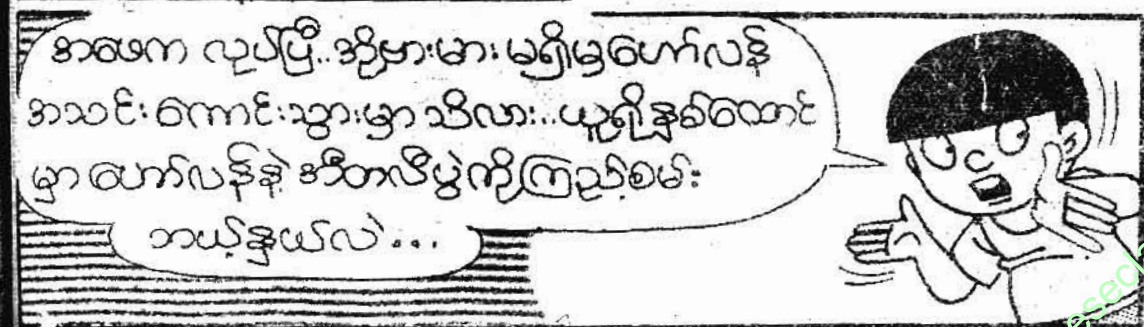 အဖေက လုပ်ပြီ..အို့ဗားမား မရှိမှဟော်လန်
အသင်း ကောင်းသွားမှာ သိလား..ယူရိုနှစ်ထောင်
မှာ ဟော်လန်နဲ့ အီတလီပွဲကို ကြည့်စမ်း
ဘယ့်နှယ်လဲ...